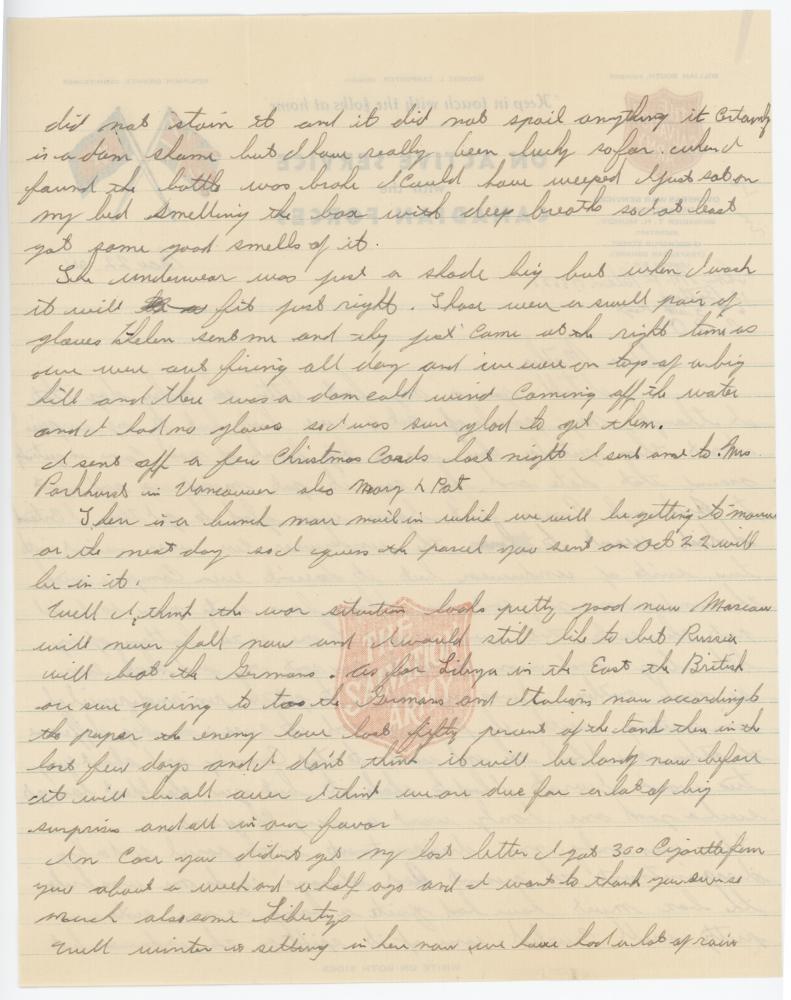 did not stain it and it did not spoil anything it certainly
is a dam shame but I have really been lucky so far. when I
found the bottle was broke I could have weeped I just sat on
my bed smelling the box with deep breaths so I at least
got some good smells of it.
The underwear was just a shade big but when I wash
it will fit just right. Those were a swell pair of
gloves Helen sent me and they just came at the right time as
we were out firing all day and we were on top of a big
hill and there was a dam cold wind coming off the water
and I had no gloves so I was sure glad to get them.
I sent off a few Christmas Cards last night I sent one to. Mrs
Parkhurst in Vancouver also Mary & Pat
There is a bunch more mail in which we will be getting to morrow
or the next day so I guess the parcel you sent on Oct 22 will
be in it.
Well I think the war situation looks pretty good now Moscow
will never fall now and I would still like to bet Russia
will beat the Germans. as for Libya in the East the British
are sure giving to too the Germans and Italians now according to
the paper the enemy have lost fifty percent of the tank there in the
last few days and I don't think it will be long now before
it will be all over I think we are due for a lot of big
surprises and all in our favor
In Case you didn't get my last letter I got 300 Cigarettes from
you about a week and a half ago and I want to thank you
much also some Libertys
Well winter is setting in here now we have had a lot of rain
THE
SALVATION
ARMY
WRITE ON BOTH SIDES
Keep in touch with the folks at home
ON ACTIVE SERVICE
CANADIAN FORCES